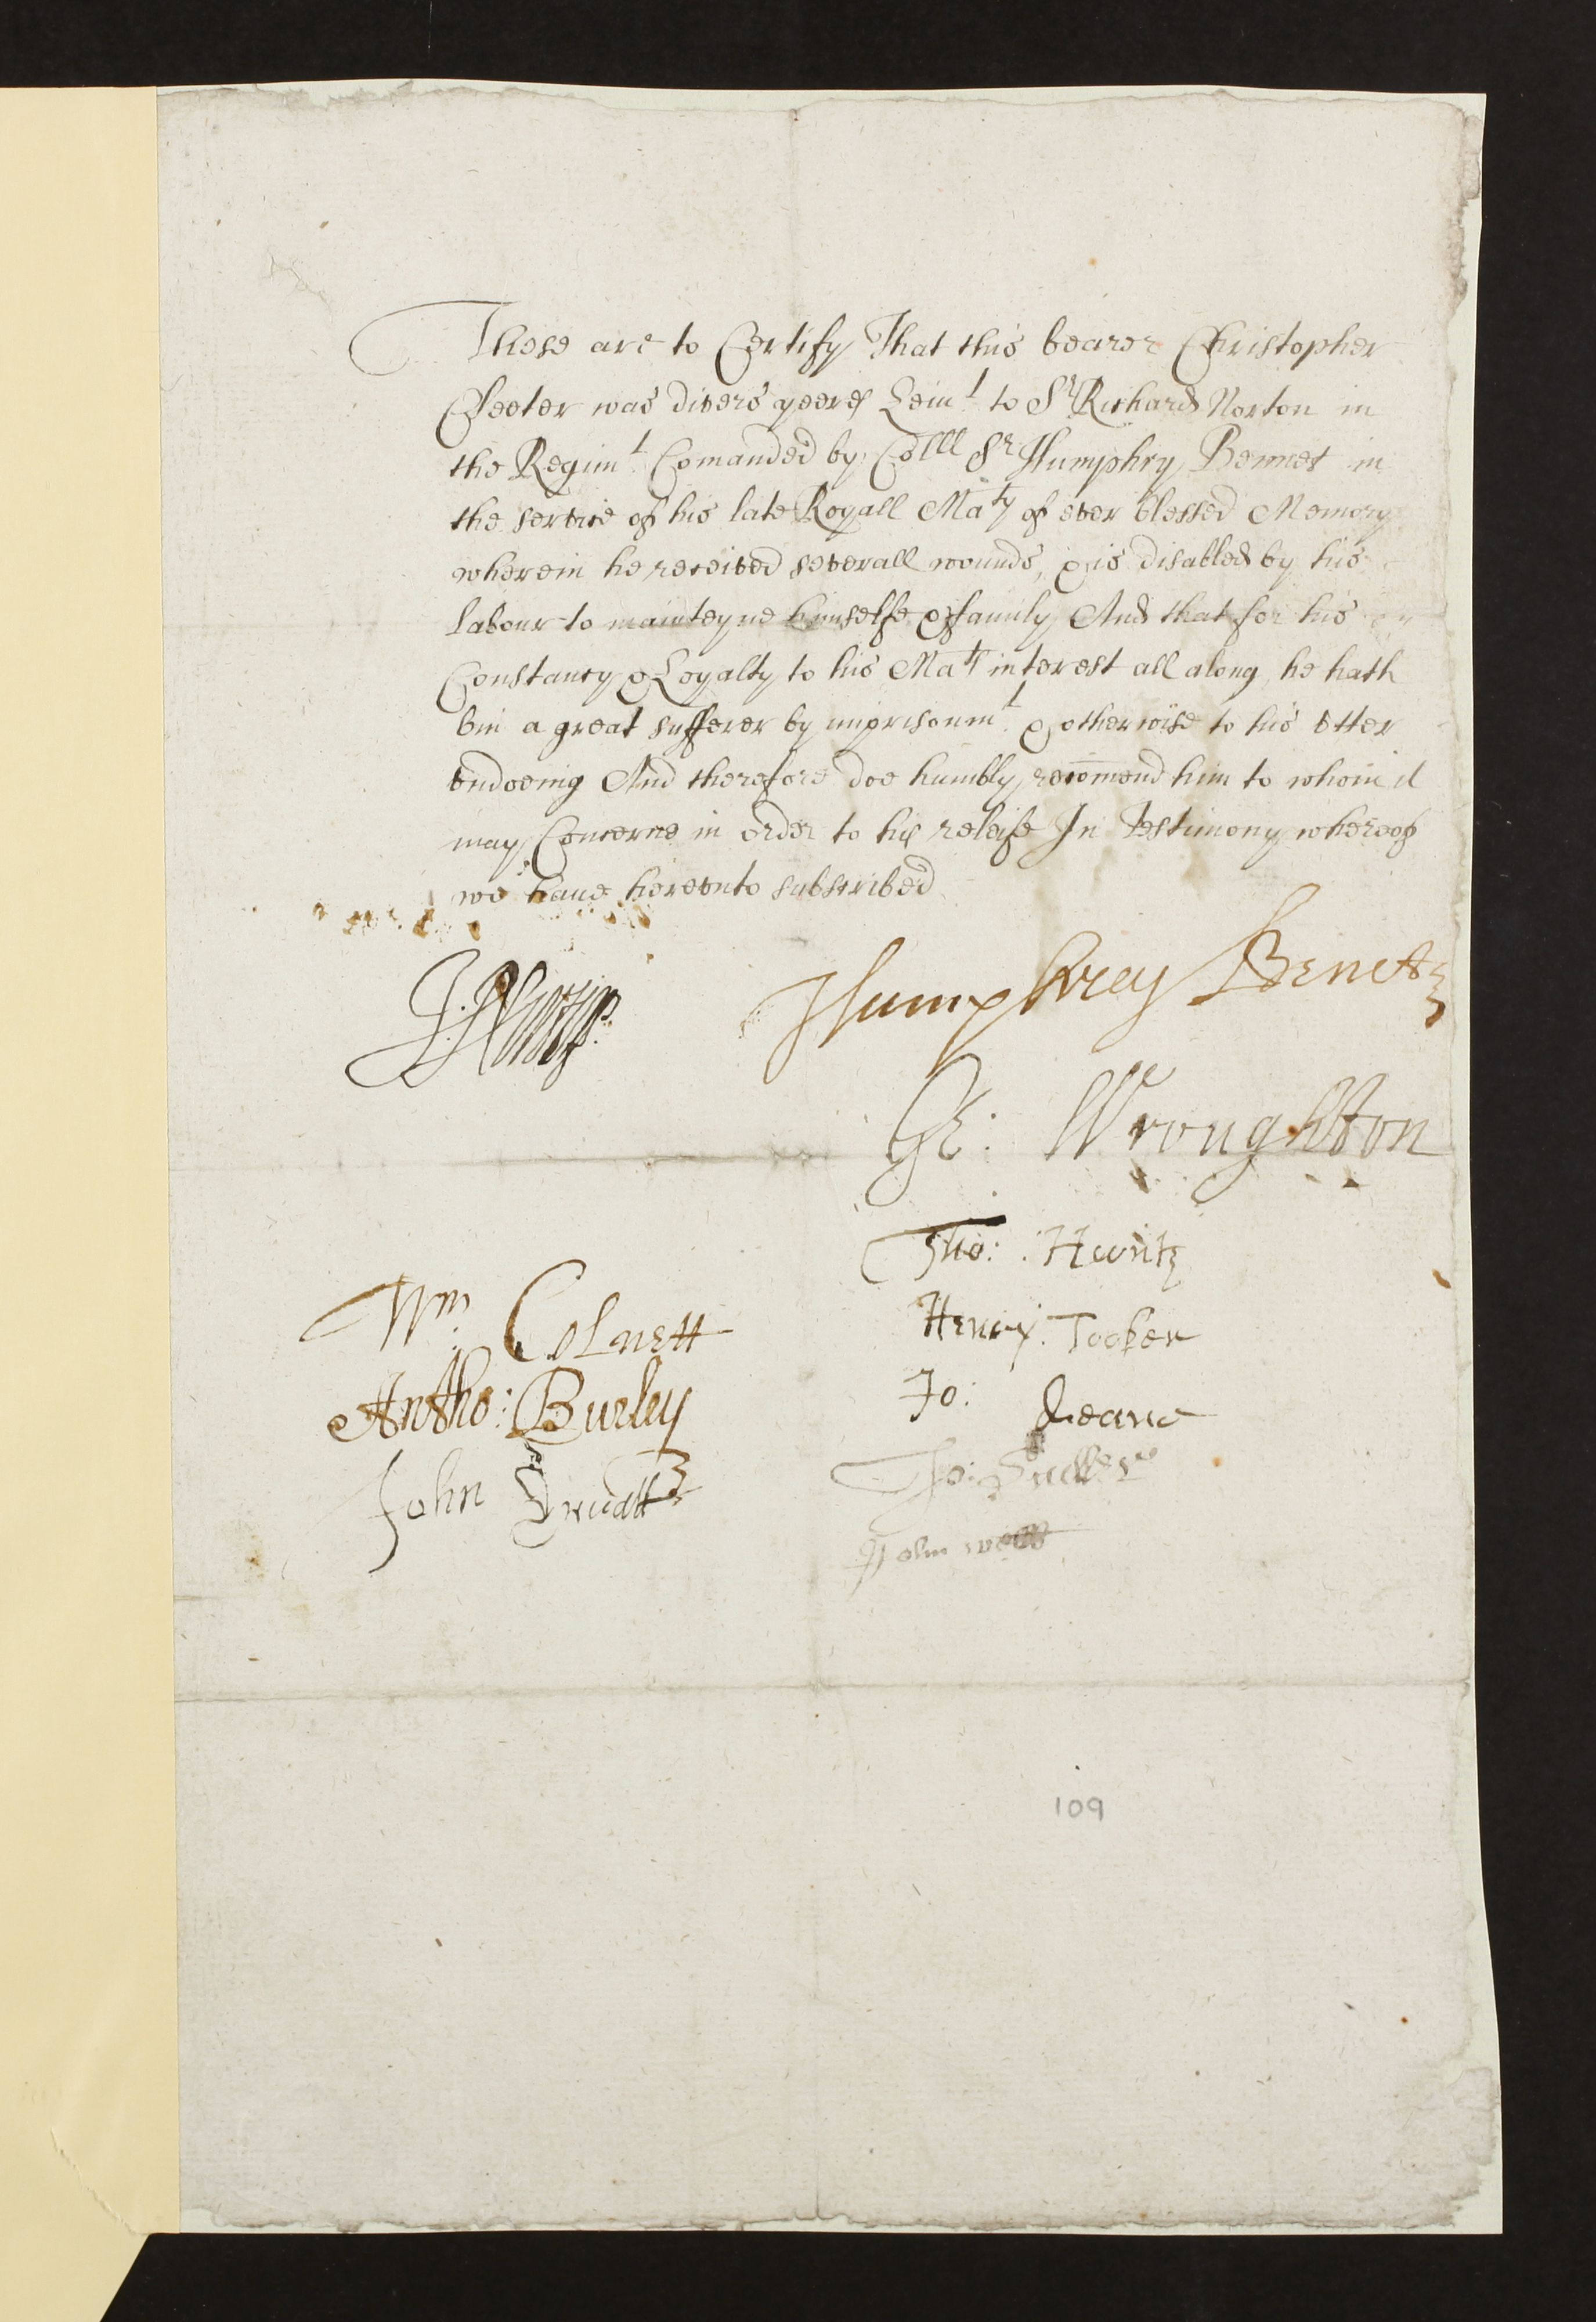 These are to Certify That this bearer Christopher
Cleeter was divers yeeres Leiut to Sr Richard Norton in
the Regimt Comanded by Colll Sr Humphry Bennet in
the service of his late Royall Maty of ever blessed Memory
wherein he received severall wounds, & is disabled by his
labour to mainteyne himselfe & family And that for his
Constancy & Loyalty to his Mats interest all along he hath
bin a great sufferer by imprisonmt & otherwise to his vtter
vndoeing And therefore doe humbly recomend him to whom it
may Concerne in order to his releife In Testimony whereof
we haue herevnto subscribed
Humphrey Benet
Ge: Wroughton
Tho: Hunt
Wm Colnett
Henry Tooker
Antho: Burley
Jo: Deane
John Pruatt
Tho: Fuller
John
109